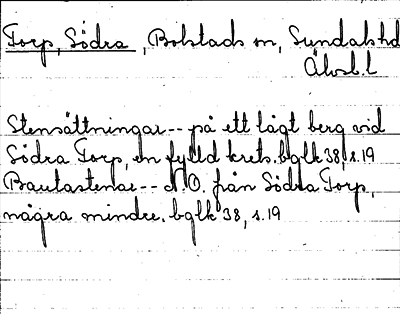 Torp, Södra , Bolstads sn, Sundals hd
Älvsb. l
Stensättningar -- på ett lågt berg vid
Södra Torp, en fylld krets. bglk 38, s. 19
Bautastenar -- N.O. från Södra Torp,
några mindre. bglk 38, s. 19